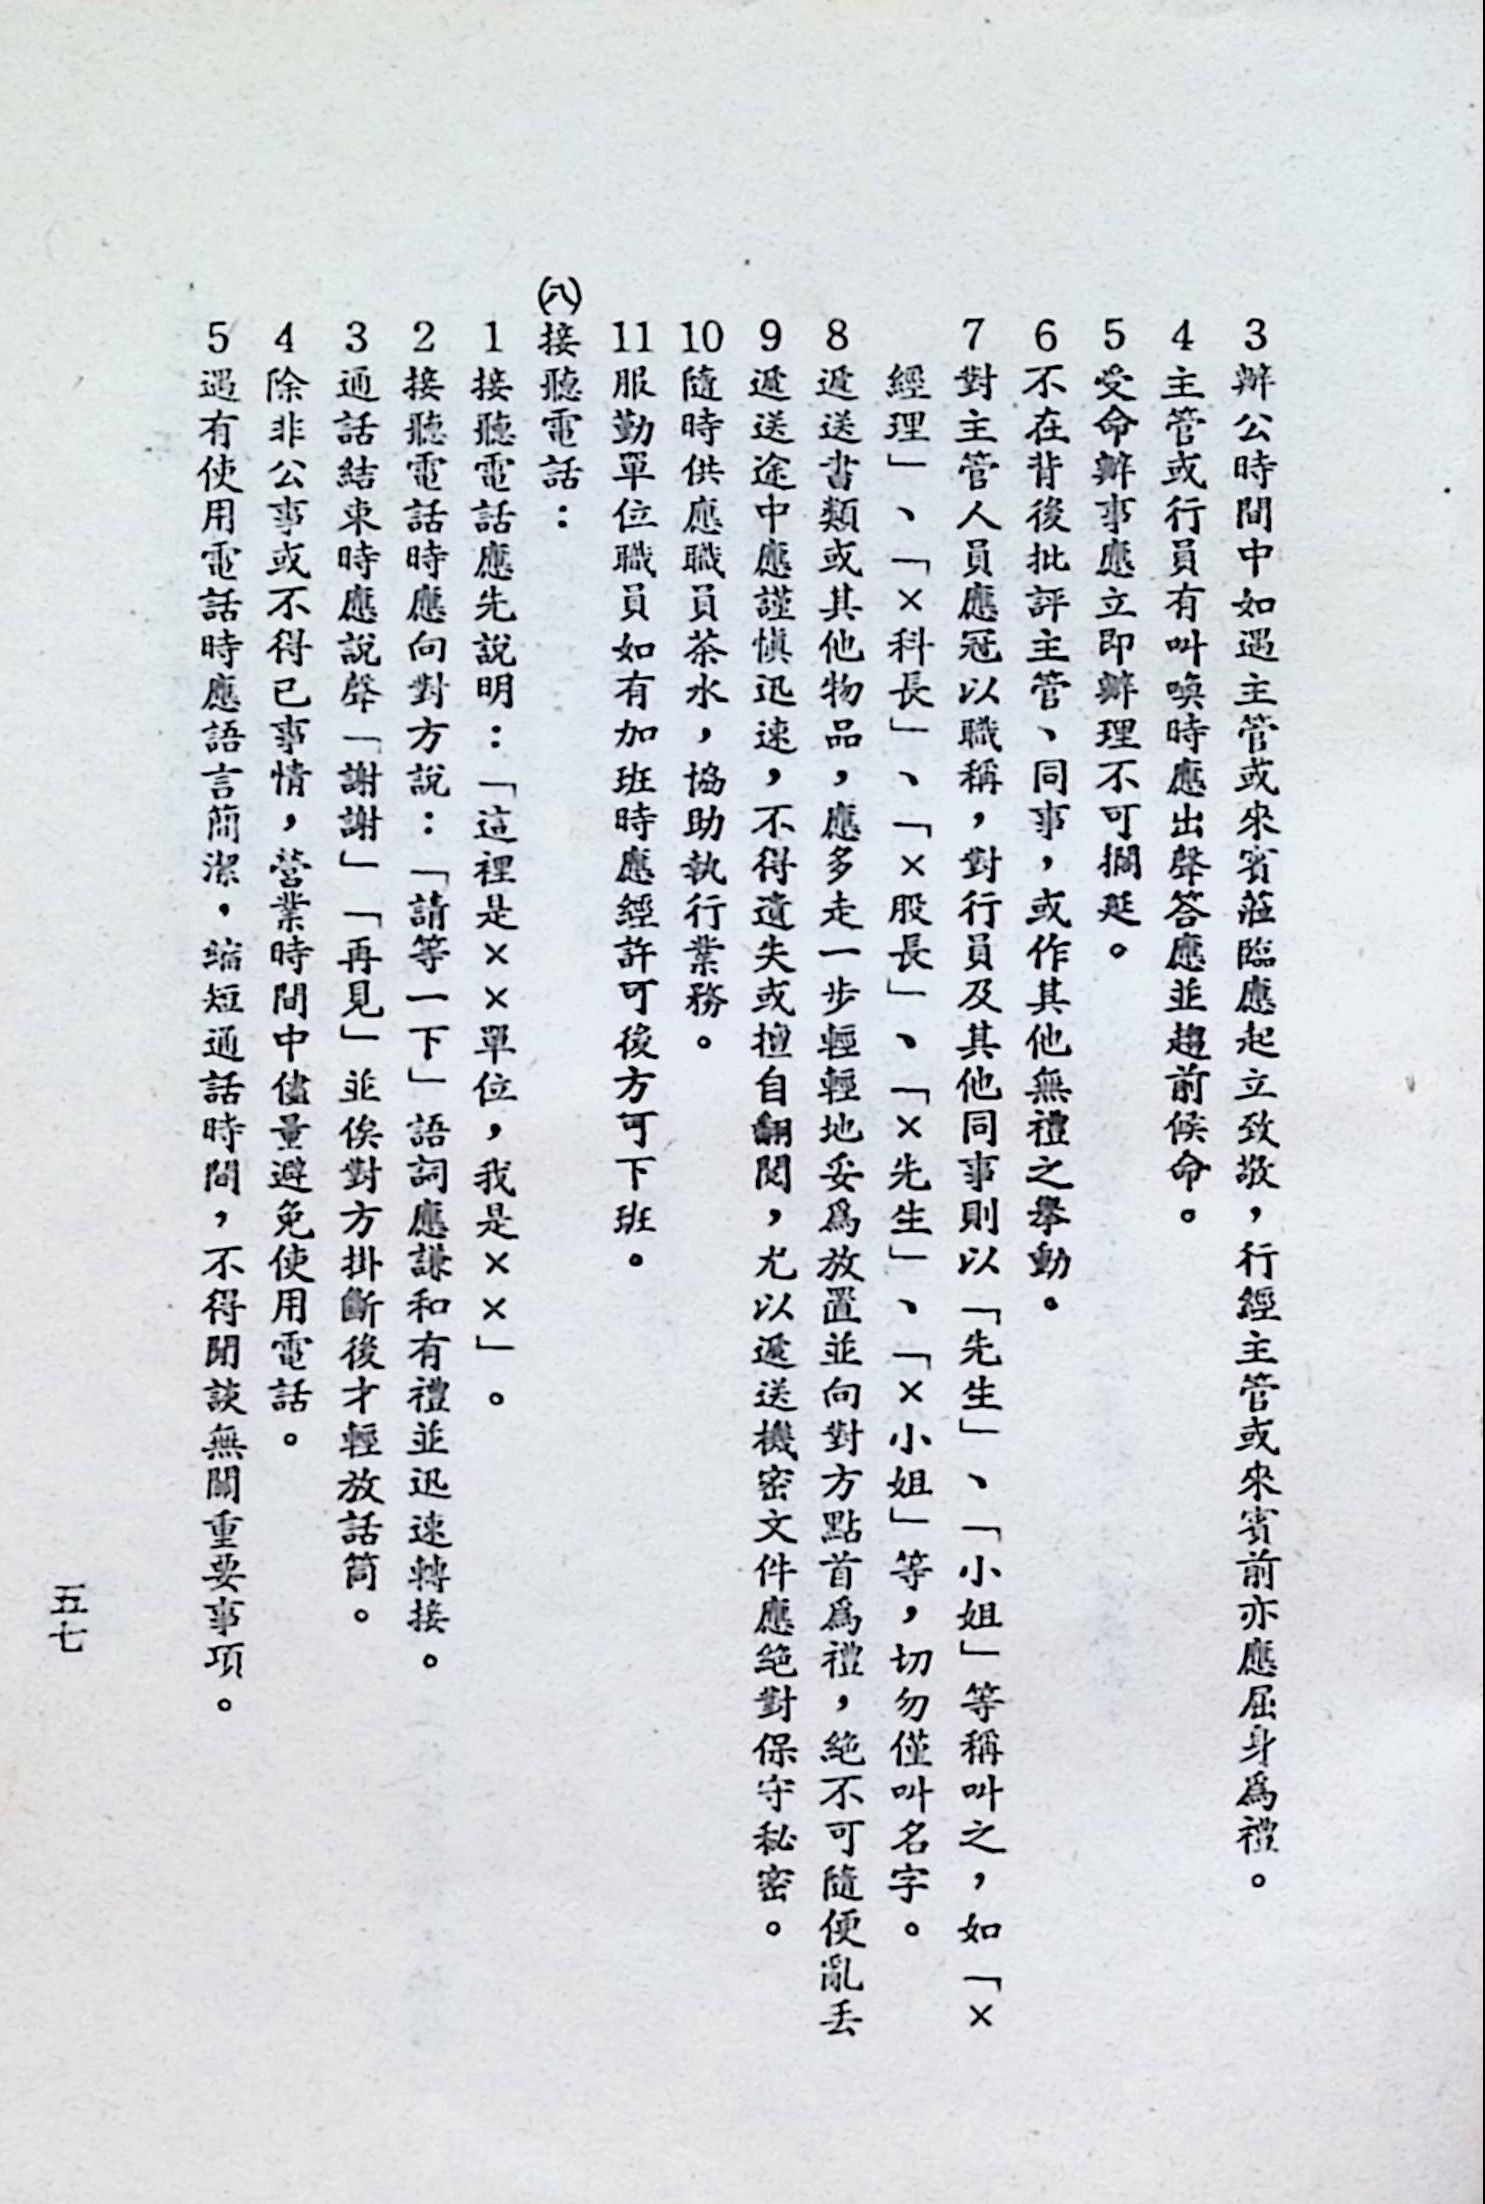 3辦公時間中如遇主管或來賓蒞臨應起立致敬，行經主管或來賓前亦應屈身爲禮。
4主管或行員有叫喚時應出聲答應並趨前候命。
5受命辦事應立即辦理不可擱延。
6不在背後批評主管、同事，或作其他無禮之舉動。
7對主管人員應冠以職稱，對行員及其他同事則以「先生」、「小姐」等稱叫之，如「×
經理」、「×科長」、「×股長」、「×先生」、「×小姐」等，切勿僅叫名字。
8遞送書類或其他物品，應多走一步輕輕地妥爲放置並向對方點首爲禮，絕不可隨便亂丢
9遞送途中應謹愼迅速，不得遺失或擅自翻閱，尤以遞送機密文件應絕對保守秘密。
10隨時供應職員茶水，協助執行業務。
11服勤單位職員如有加班時應經許可後方可下班。
㈧接聽電話：
1接聽電話應先說明：「這裡是××單位，我是××」。
2接聽電話時應向對方說：「請等一下」語詞應謙和有禮並迅速轉接。
3通話結束時應說聲「謝謝」「再見」並俟對方掛斷後才輕放話筒。
4除非公事或不得已事情，營業時間中儘量避免使用電話。
5遇有使用電話時應語言簡潔，縮短通話時間，不得閒談無關重要事項。
五七